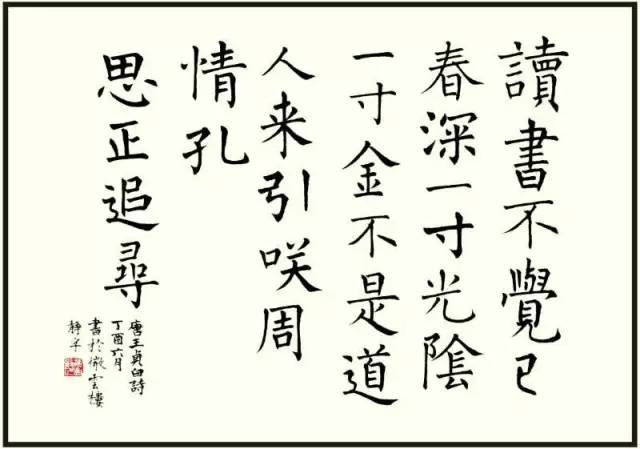 讀書不覺已
春深一寸光陰
一寸金不是道
人来引咲周
情孔
思正追尋
唐王貞白詩
丁酉六月
書於微雲樓
静字